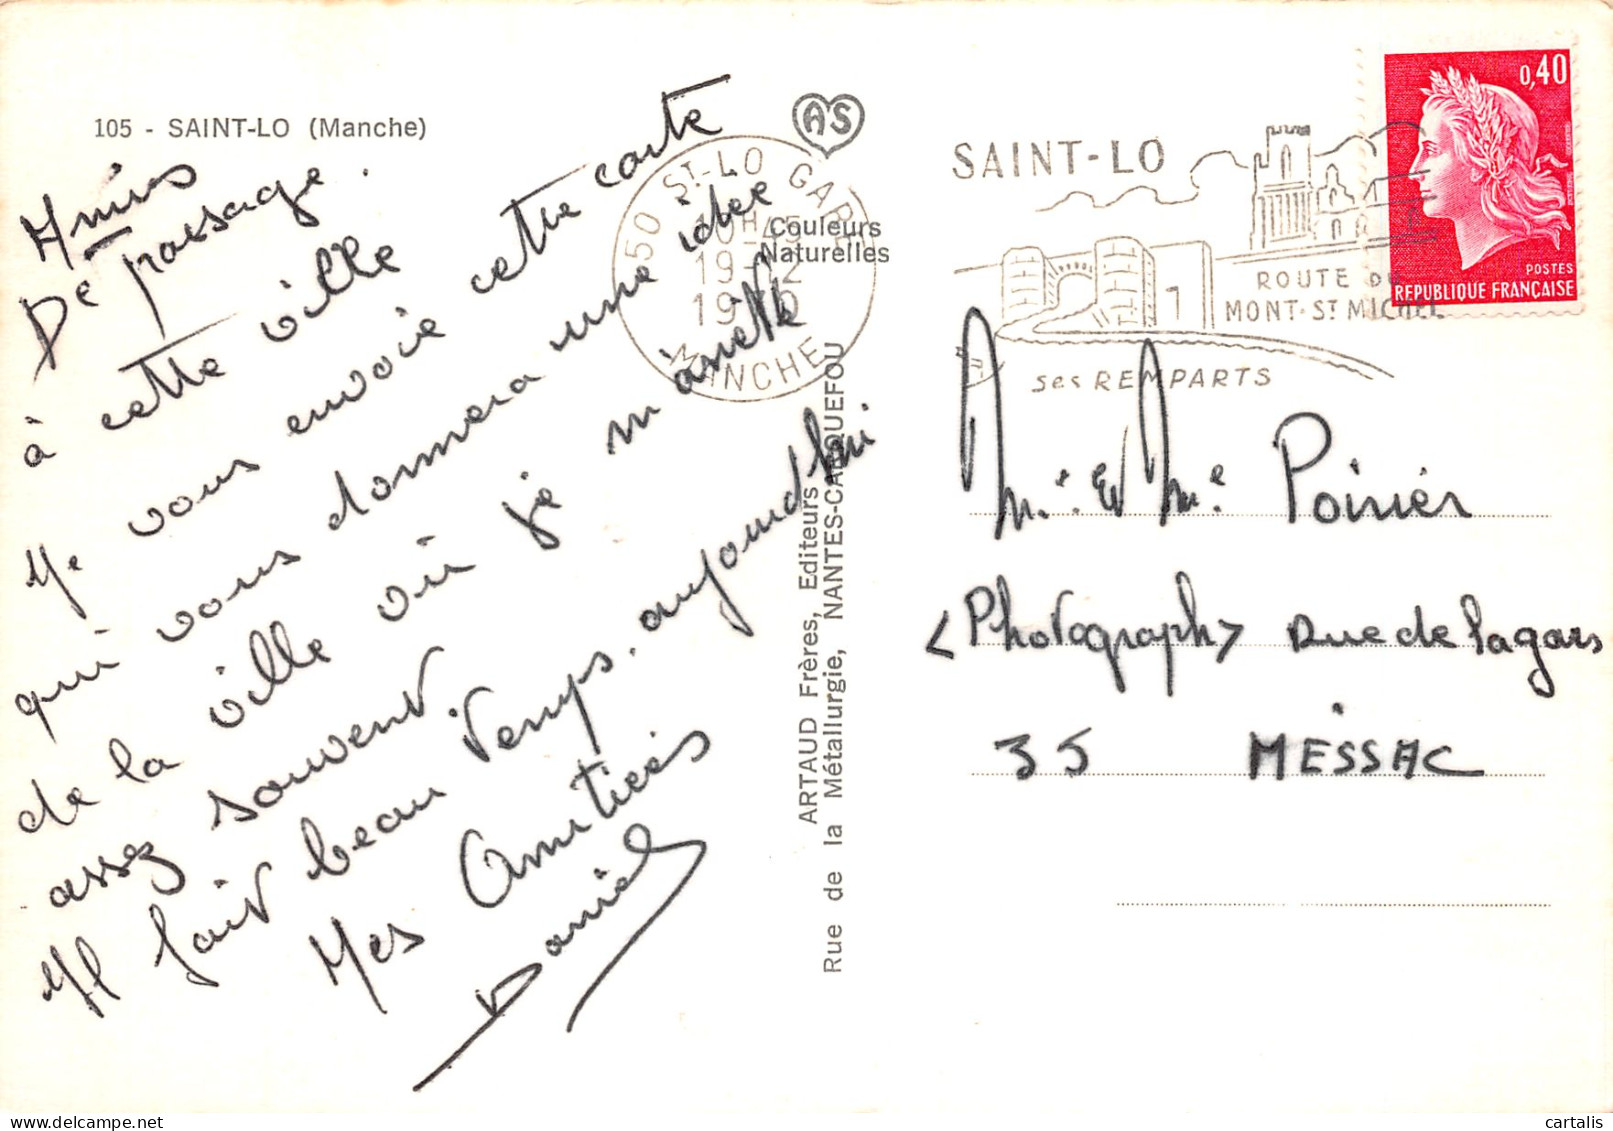 105 - SAINT-LO (Manche)
Amis
De passage.
à cette ville
Je vous envoie cette carte
qui vous donnera une idée
de la ville où je m'arrête
assez souvent.
Il fait beau temps. aujourd'hui
Mes Amitiés
Daniel
AS
Couleurs
Naturelles
50 ST-LO GARE
MANCHE
ARTAUD Frères, Editeurs
Rue de la Métallurgie, NANTES-CARQUEFOU
SAINT-LO
ROUTE DU
MONT-ST MICHEL
ses REMPARTS
0,40
POSTES
REPUBLIQUE FRANÇAISE
Mr. et Me. Poirier
<Photograph> Rue de Lagars
35 MESSAC
cartalis